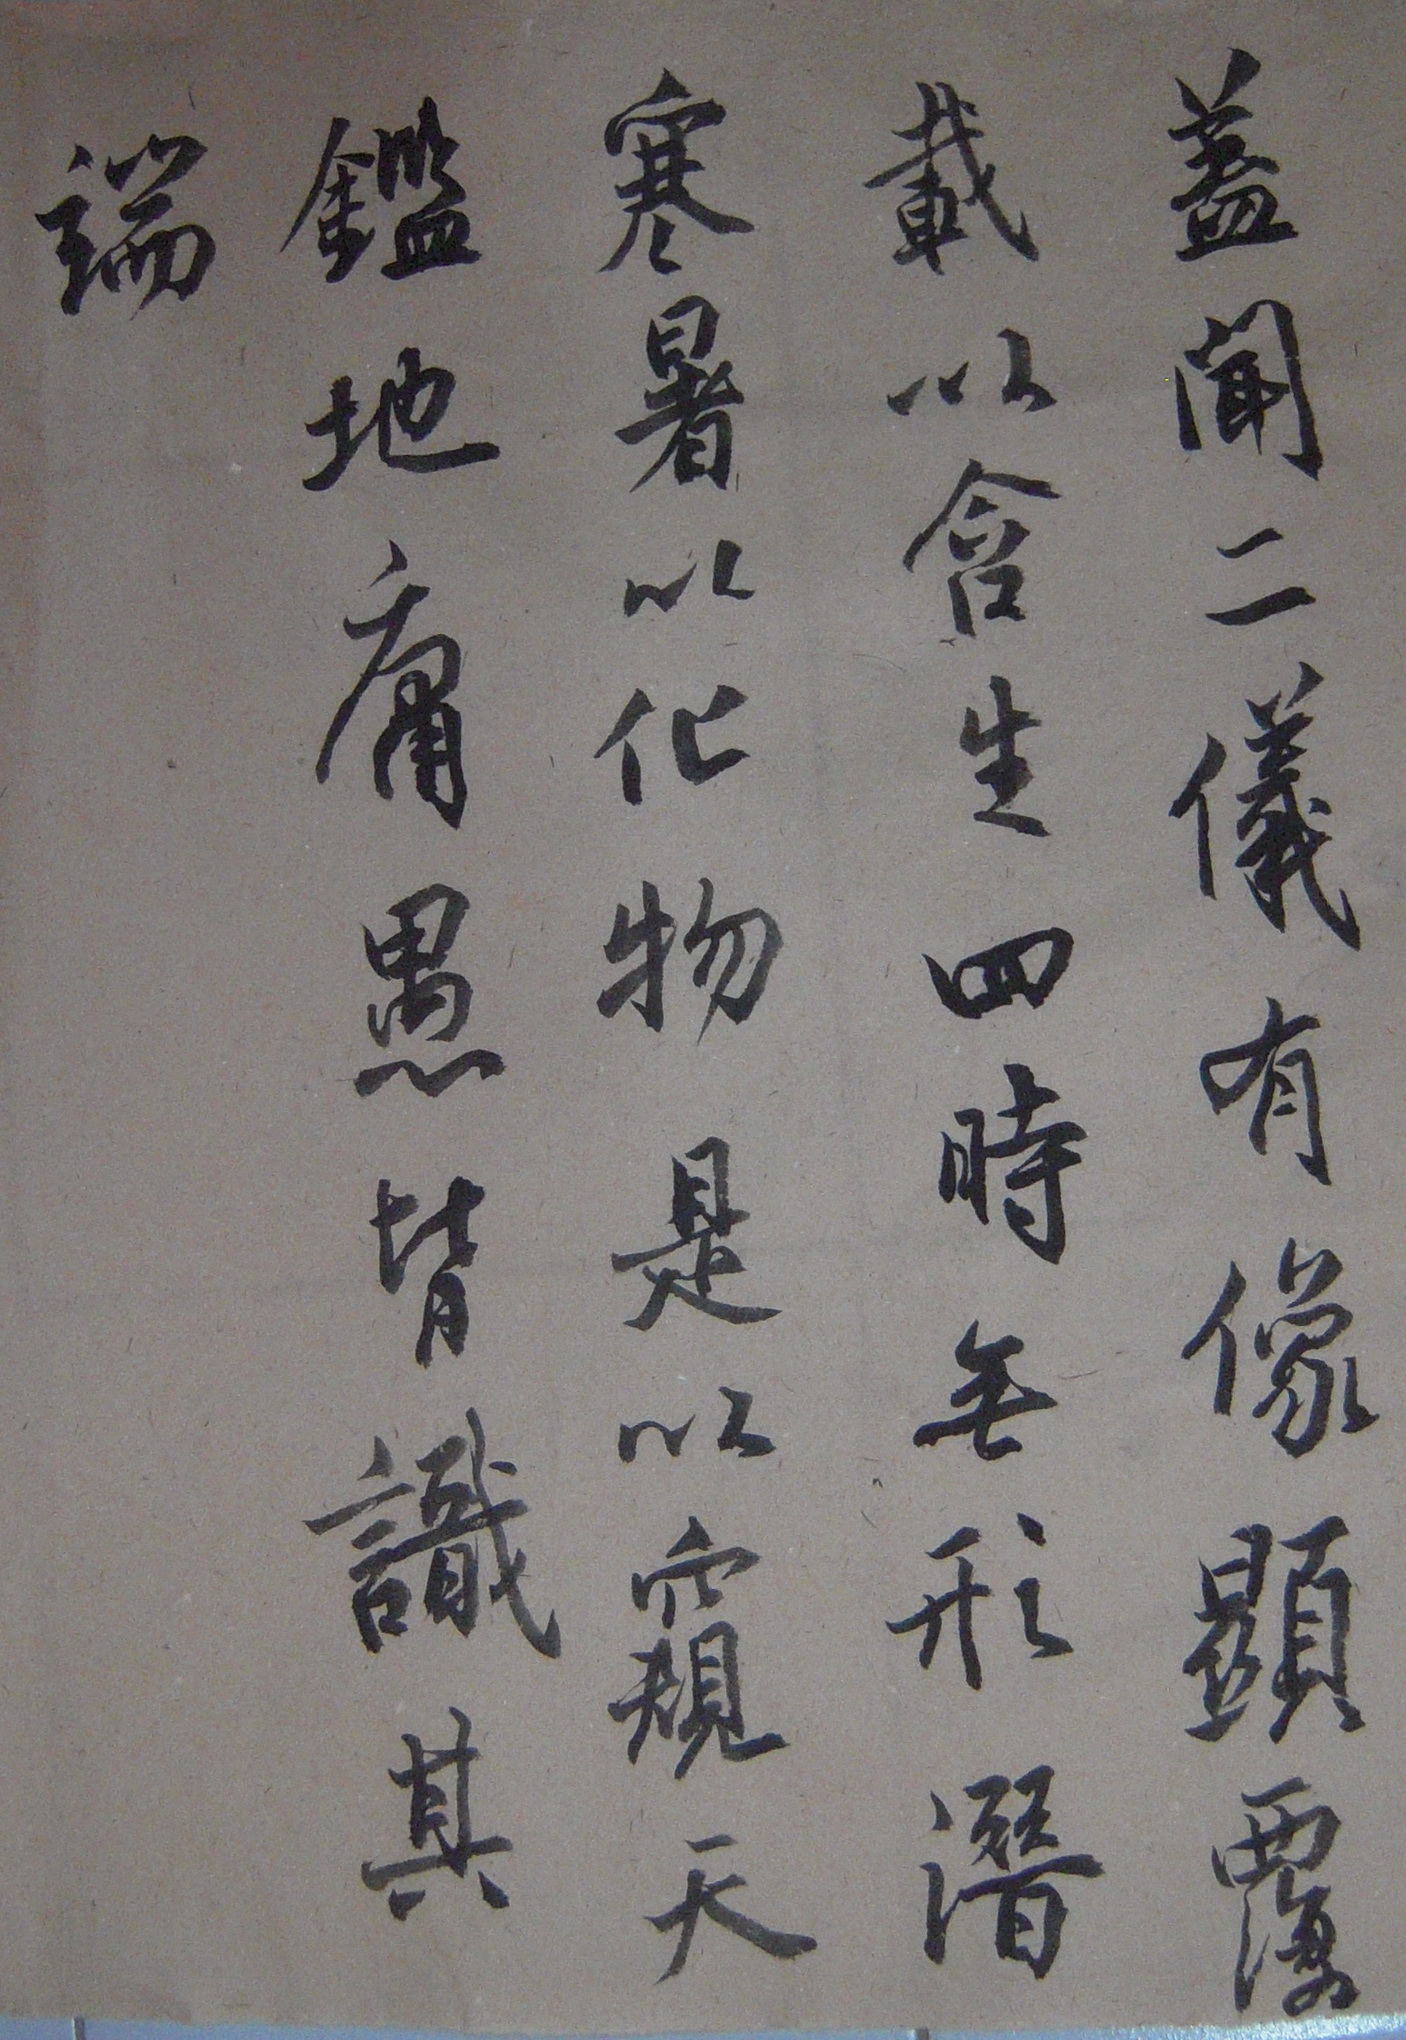 蓋聞二儀有像顯覆
載以含生四時無形潛
寒暑以化物是以窺天
鑑地庸愚皆識其
端